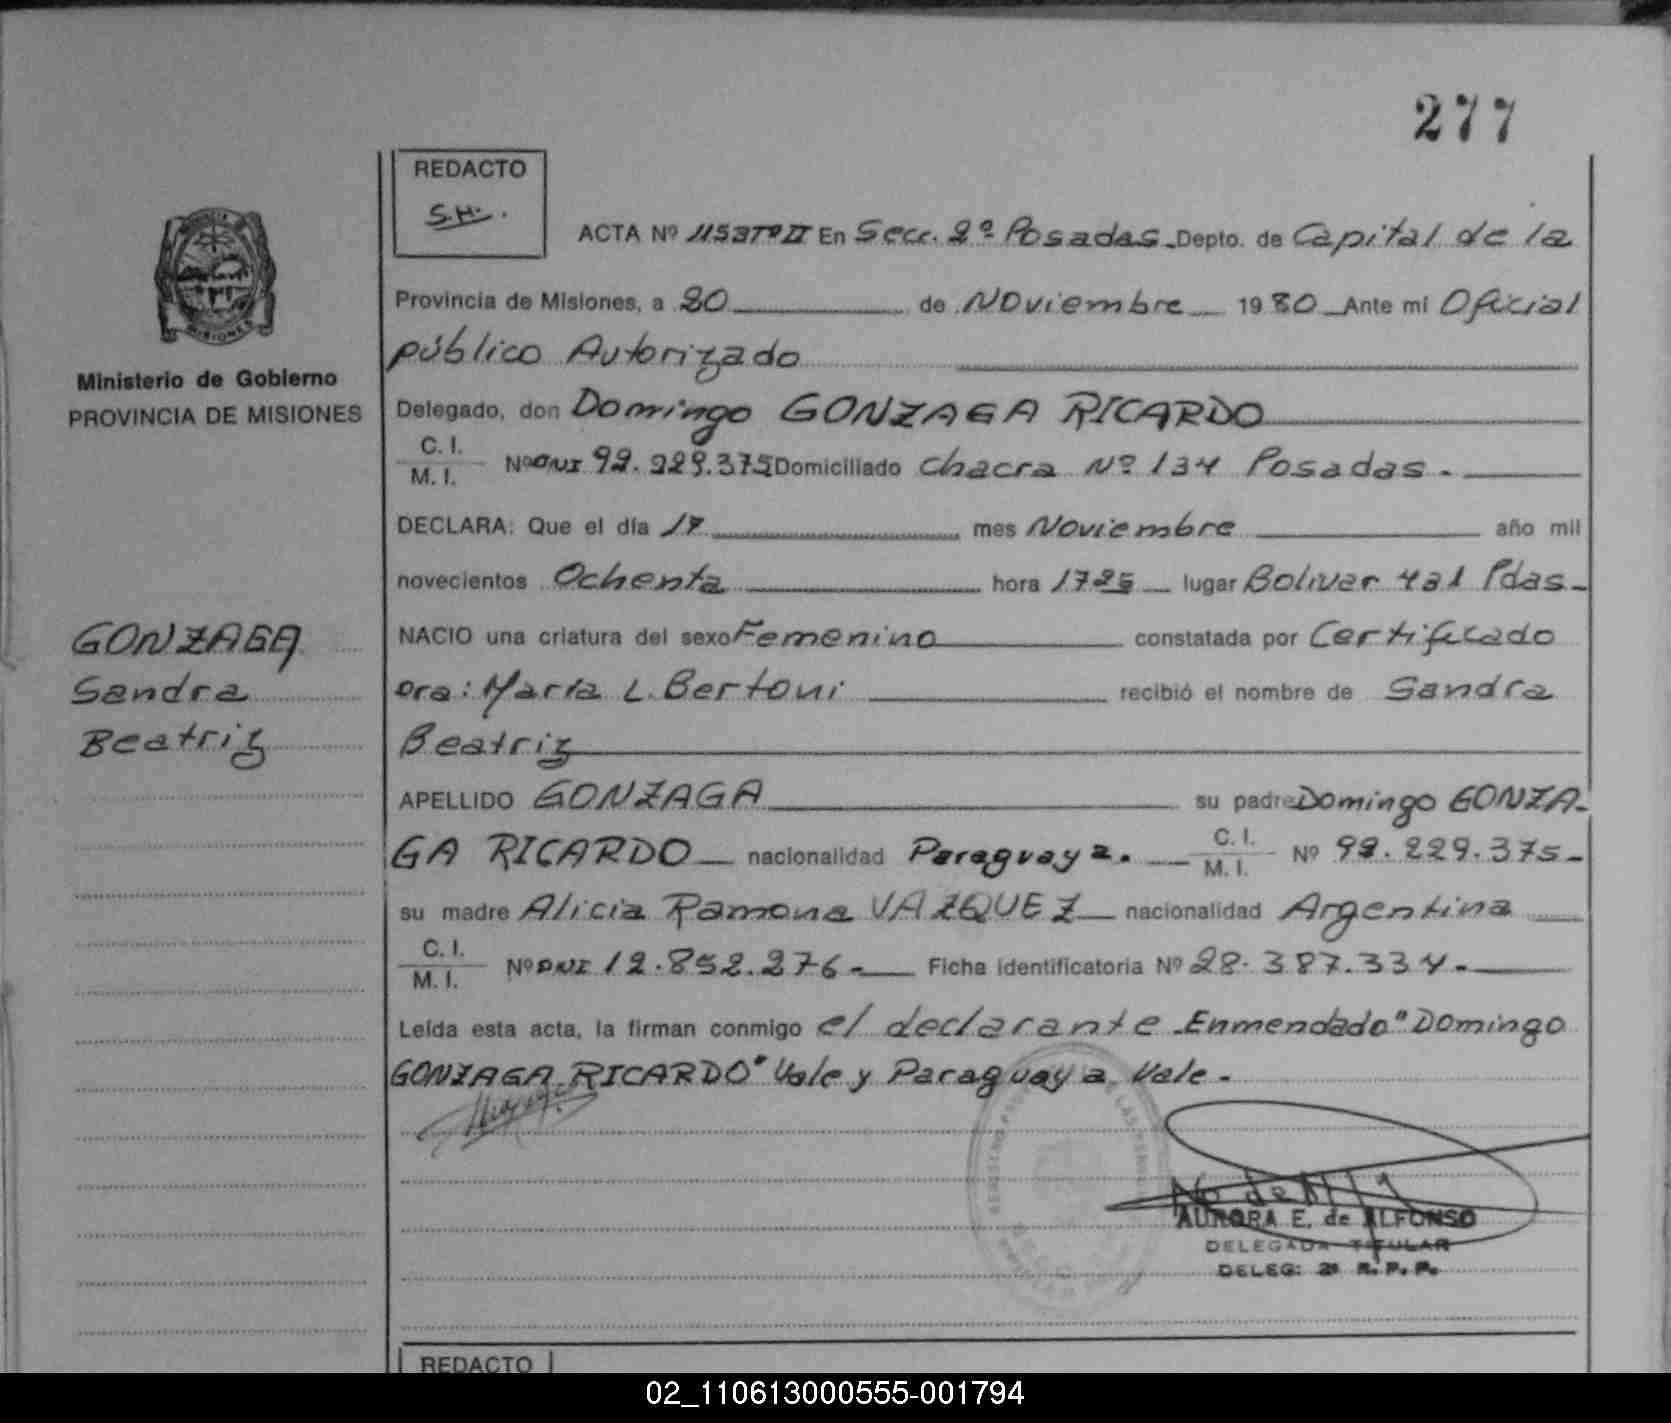 277
REDACTO
S.H.
ACTA Nº 1153Tº II En Secc. 2º Posadas. Depto. de Capital de la
Provincia de Misiones, a 20 de Noviembre 1980 Ante mi Oficial
público Autorizado
Ministerio de Gobierno
PROVINCIA DE MISIONES
Delegado, don Domingo GONZAGA RICARDO
C. I.
M. I. Nº DNI 92.229.375 Domiciliado Chacra Nº 134 Posadas.
DECLARA: Que el día 17 mes Noviembre año mil
novecientos Ochenta hora 1725 lugar Bolivar 421 Pdas-
GONZAGA
Sandra
Beatriz
NACIO una criatura del sexo Femenino constatada por Certificado
Dra: María L. Bertoni recibió el nombre de Sandra
Beatriz
APELLIDO GONZAGA su padre Domingo GONZA-
GA RICARDO nacionalidad Paraguaya. C. I.
M. I. Nº 92.229.375-
su madre Alicia Ramona VAZQUEZ nacionalidad Argentina
C. I.
M. I. Nº DNI 12.852.276- Ficha Identificatoria Nº 28.387.334.-
Leída esta acta, la firman conmigo el declarante Enmendado "Domingo
GONZAGA RICARDO" Vale y Paraguaya Vale.-
AURORA E. de ALFONSO
DELEGADA TITULAR
DELEG: 2ª R. P. P.
REDACTO
02_110613000555-001794